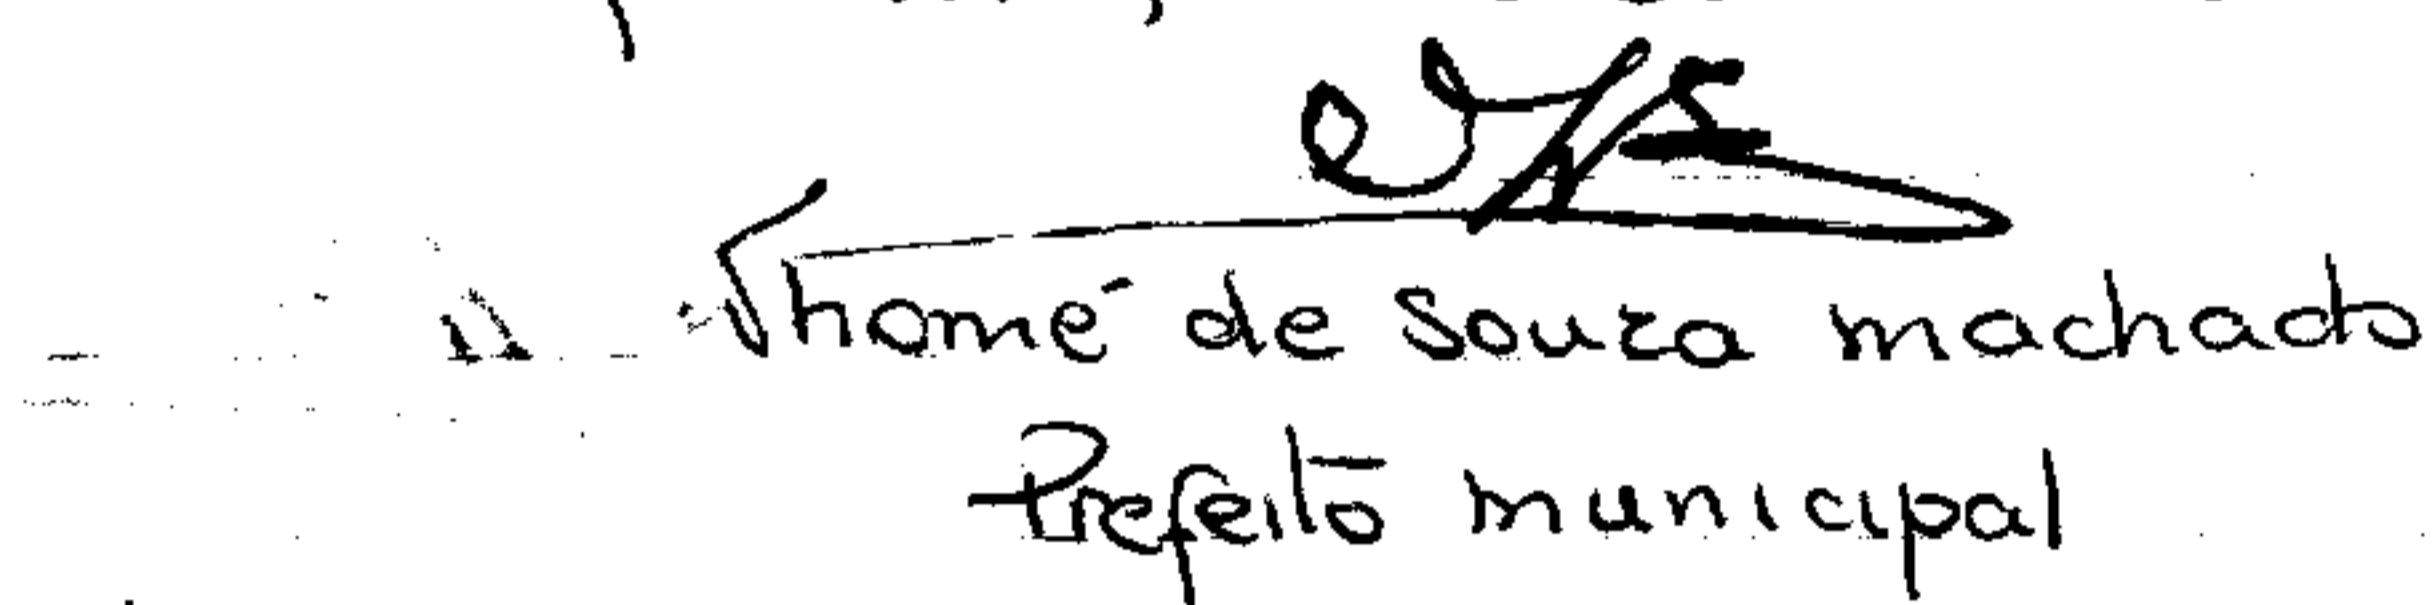 Thomé de Souza machado
Prefeito municipal